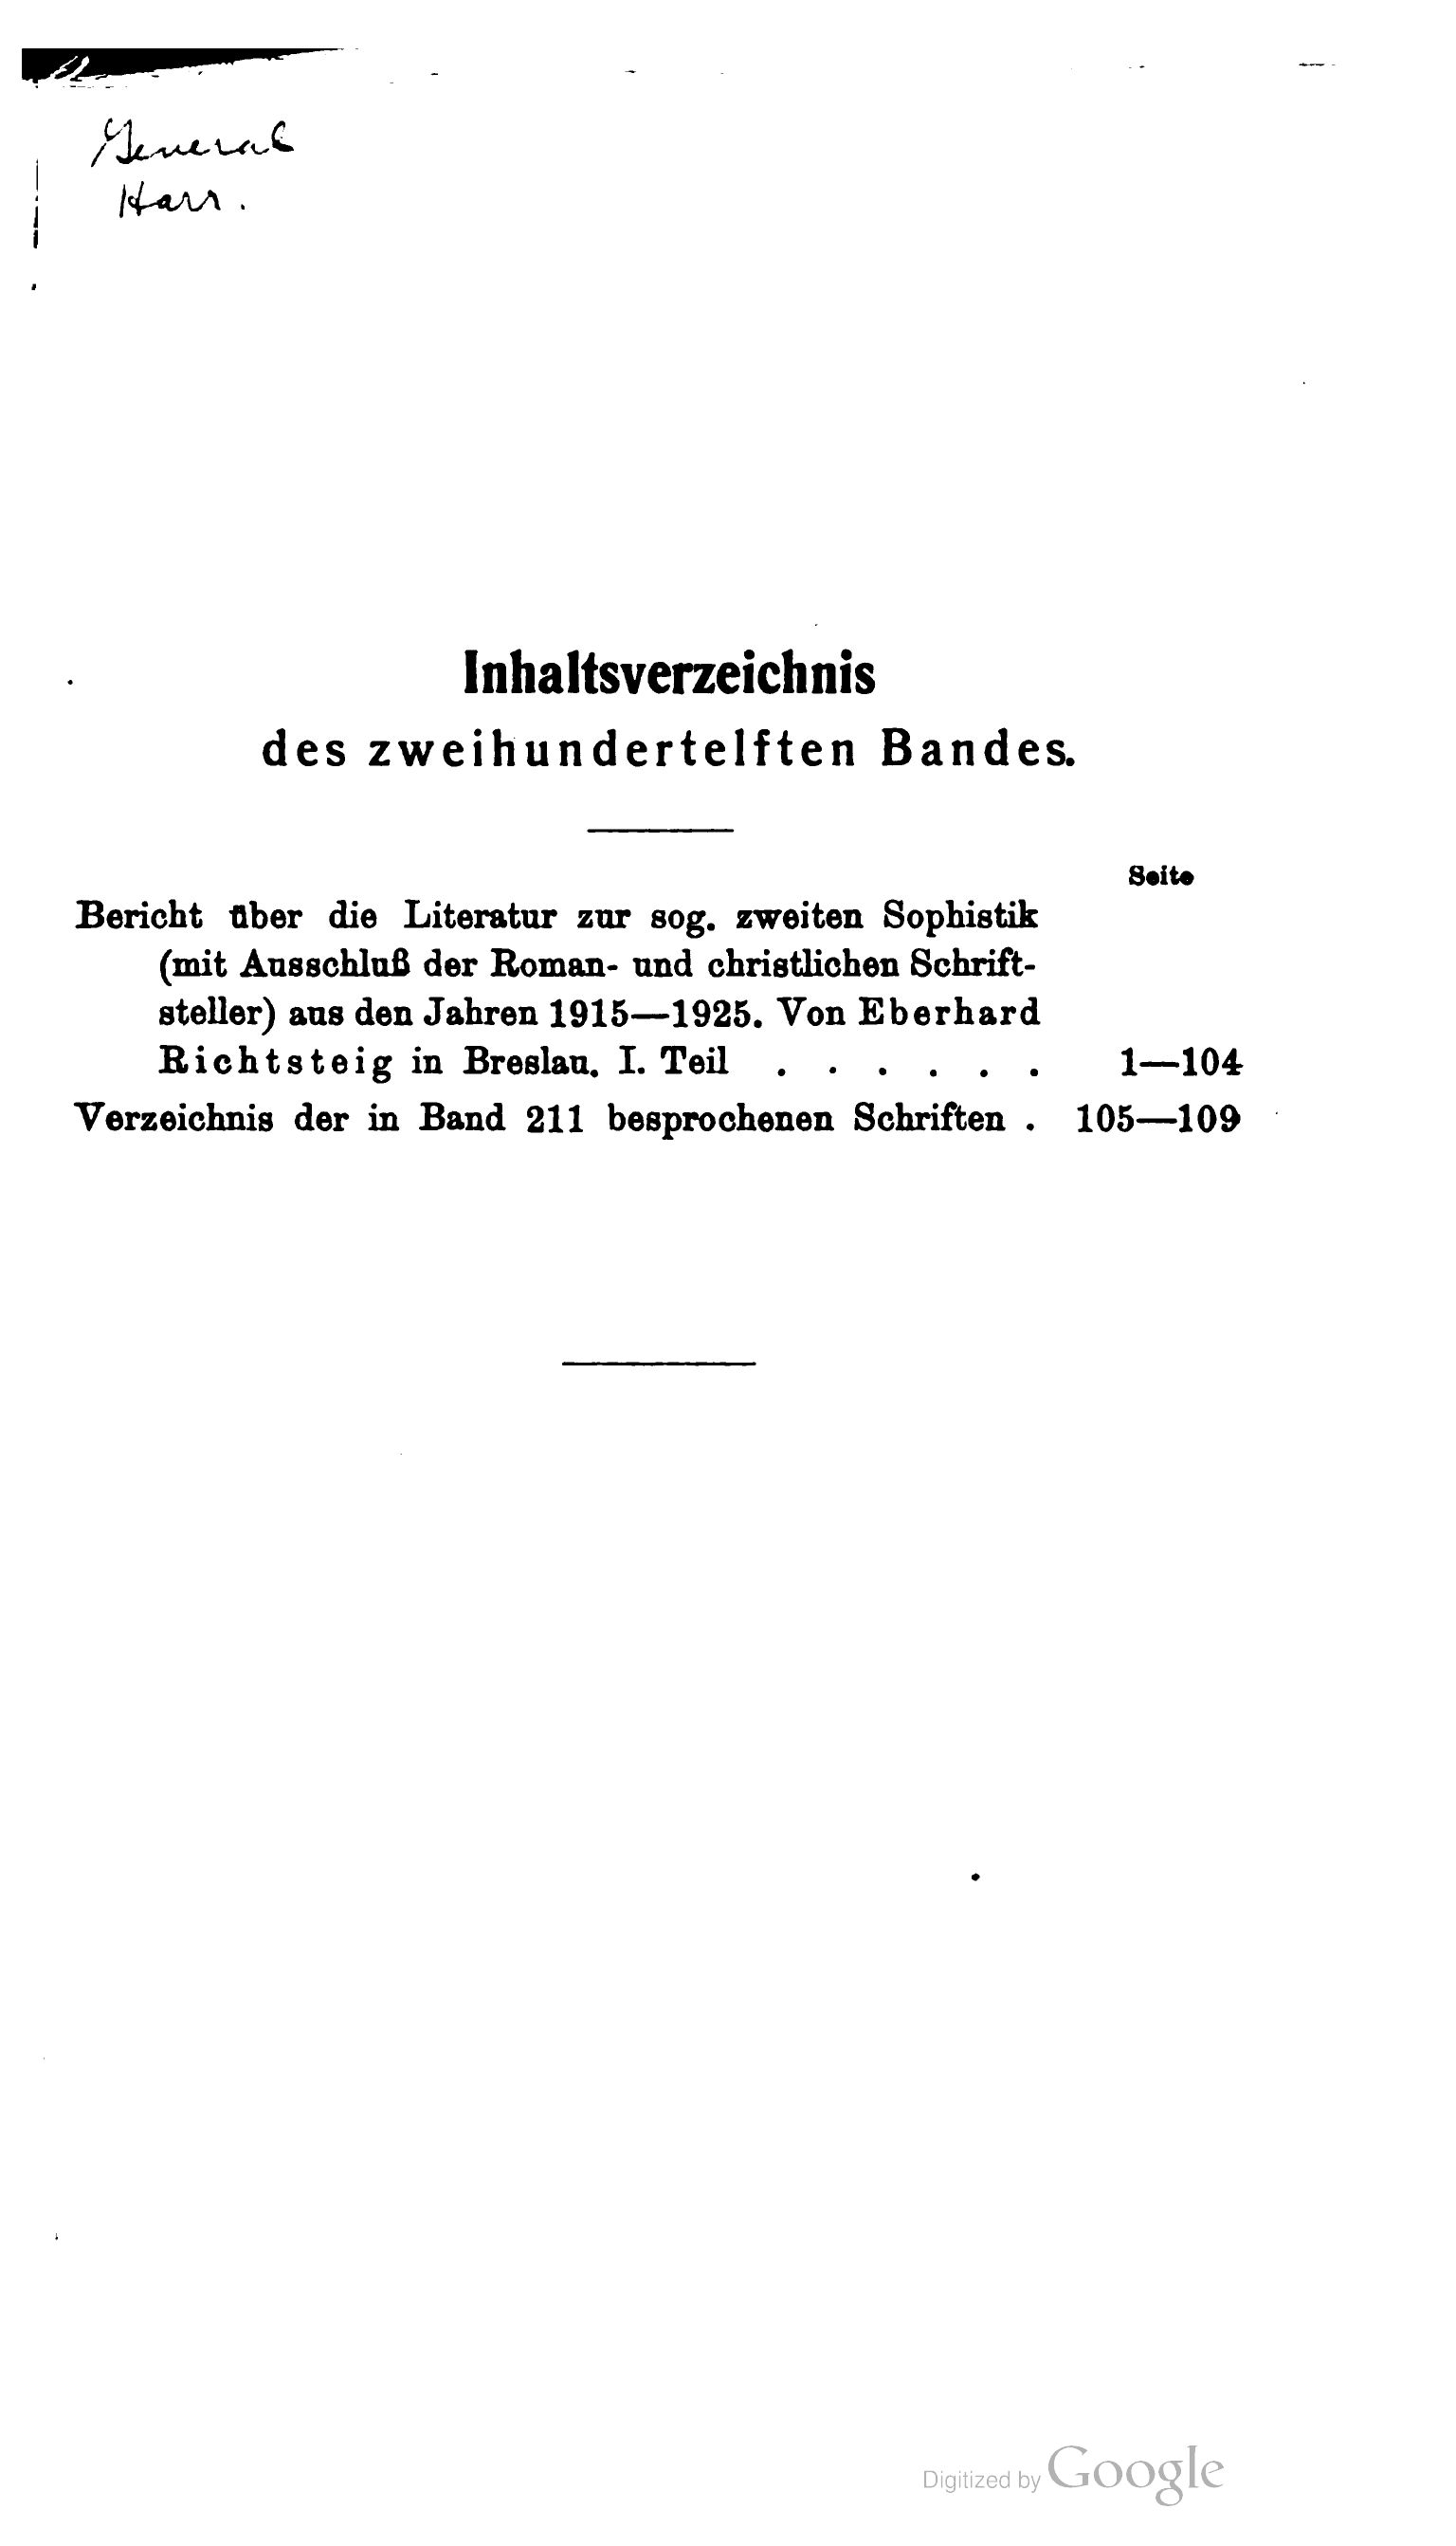 General
Harr.
Inhaltsverzeichnis
des zweihundertelften Bandes.
Seite
Bericht über die Literatur zur sog. zweiten Sophistik
(mit Ausschluß der Roman- und christlichen Schrift-
steller) aus den Jahren 1915—1925. Von Eberhard
Richtsteig in Breslau. I. Teil . . . . . . 1—104
Verzeichnis der in Band 211 besprochenen Schriften . 105—109
Digitized by Google